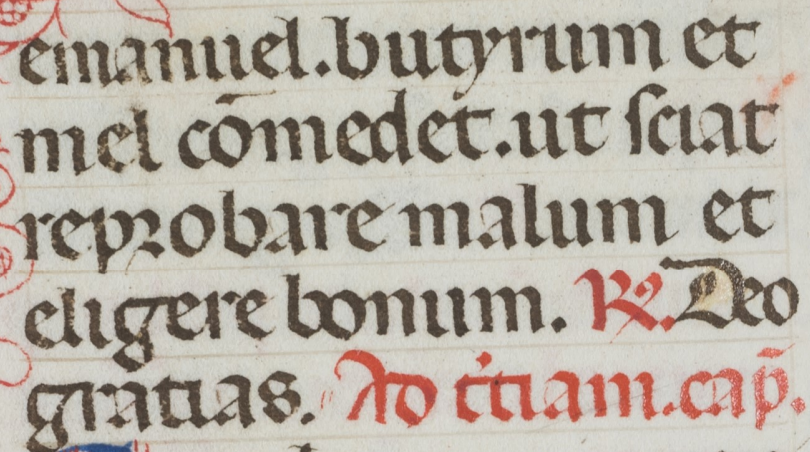 emanuel. butyrum et
mel cōmedet. ut sciat
reprobare malum et
eligere bonum. ℟. Deo
gratias. Ad t̉tiam. cap̄.